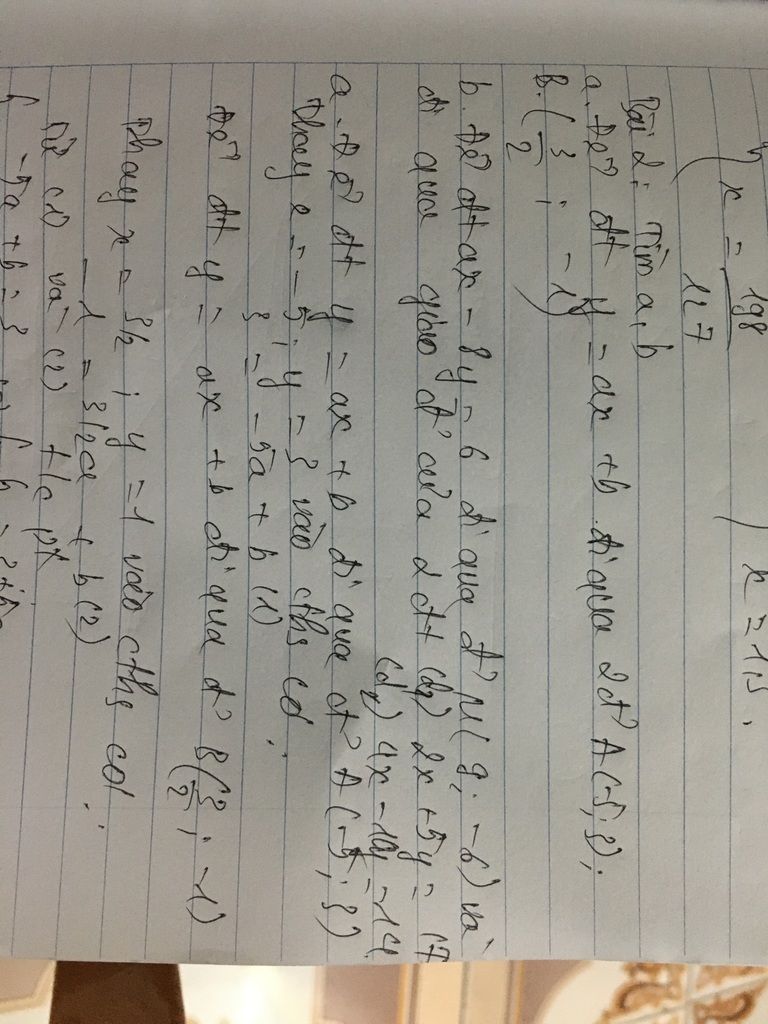 x = 198/127
x = 15.
Bài 2: Tìm a, b
a. Để đt y = ax + b đi qua 2 đ' A(-5; 3);
B. (3/2; -1)
b. Để đt ax - 8y = b đi qua đ' M(9; -6) và
đi qua giao đ' của 2 đt (d1) 2x + 5y = 17
(d2) 4x - 10y = 14
a. Để đt y = ax + b đi qua đ' A(-5; 3)
Thay x = -5; y = 3 vào cths có:
3 = -5a + b (1)
Để đt y = ax + b đi qua đ' B(3/2; -1)
Thay x = 3/2; y = -1 vào cths có:
-1 = 3/2a + b (2)
Từ (1) và (2) ta có pt
-5a + b = 3